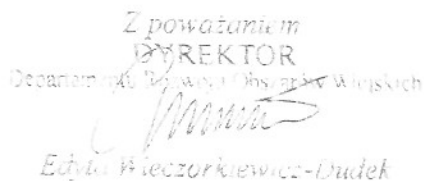 Z poważaniem
DYREKTOR
Departamentu Rozwoju Obszarów Wiejskich
Edyta Wieczorkiewicz-Dudek